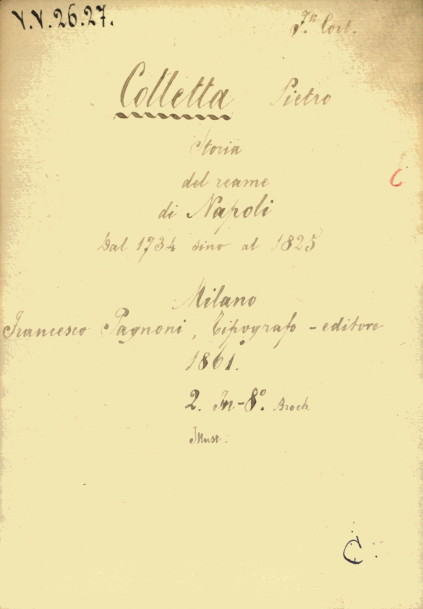 V.V.26.27.
In Cort.
Colletta Pietro
Storia
del reame
di Napoli
Dal 1734 sino al 1825
Milano
Francesco Pagnoni, Tipografo-editore
1861.
2. In-8°. Broch
Illust.
C